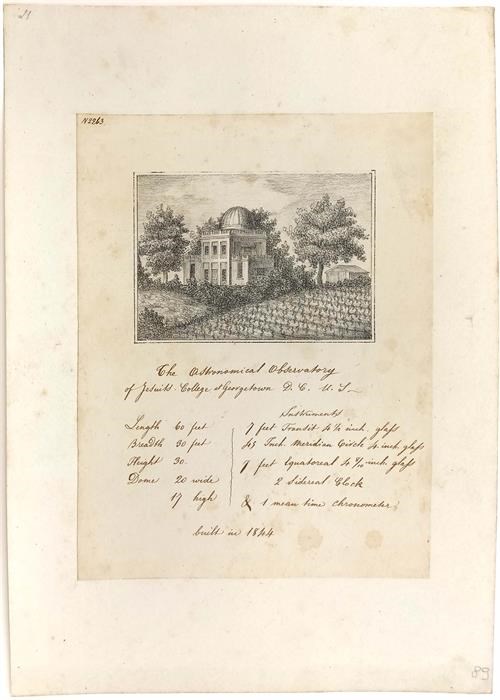 21
N2263
The Astronomical Observatory
of Jesuits College at Georgetown D. C. U. S.
Instruments
Length 60 feet
Breadth 30 feet
Height 30.
Dome 20 wide
17 high
7 feet Transit 4½ inch. glass
45 Inch. Meridian Circle 4 inch. glass
7 feet Equatoreal 4 8/10 inch. glass
2 Sidereal Clock
& 1 mean time chronometer
built in 1844
89